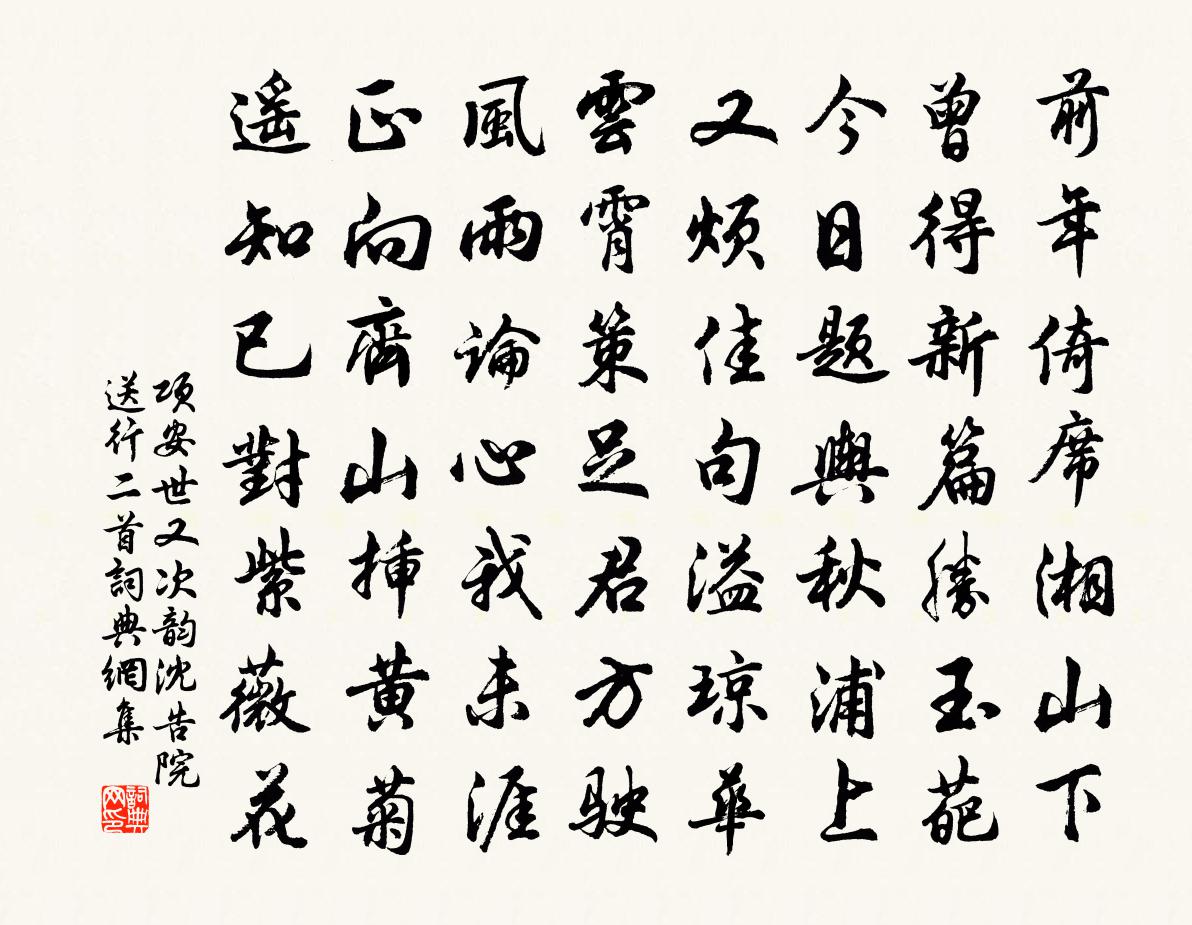 前年倚席湘山下
曾得新篇勝玉葩
今日題輿秋浦上
又煩佳句溢琼華
雲霄策足君方駛
風雨論心我未涯
正向齊山挿黃菊
遥知已對紫薇花
項安世又次韵沈告院
送行二首詞典網集
詞典网印